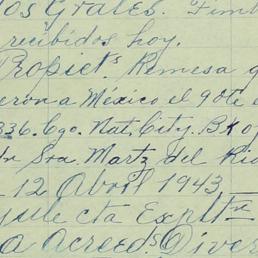 os Grales. Timb
recibidos hoy.
Propiets. Remesa q
eron a México el 9 de e
336. Cgo. Nat. City. Bk o
dr Sra. Martz del Rio
12 Abril 1943
cta Expltn
a Acreeds. Diver